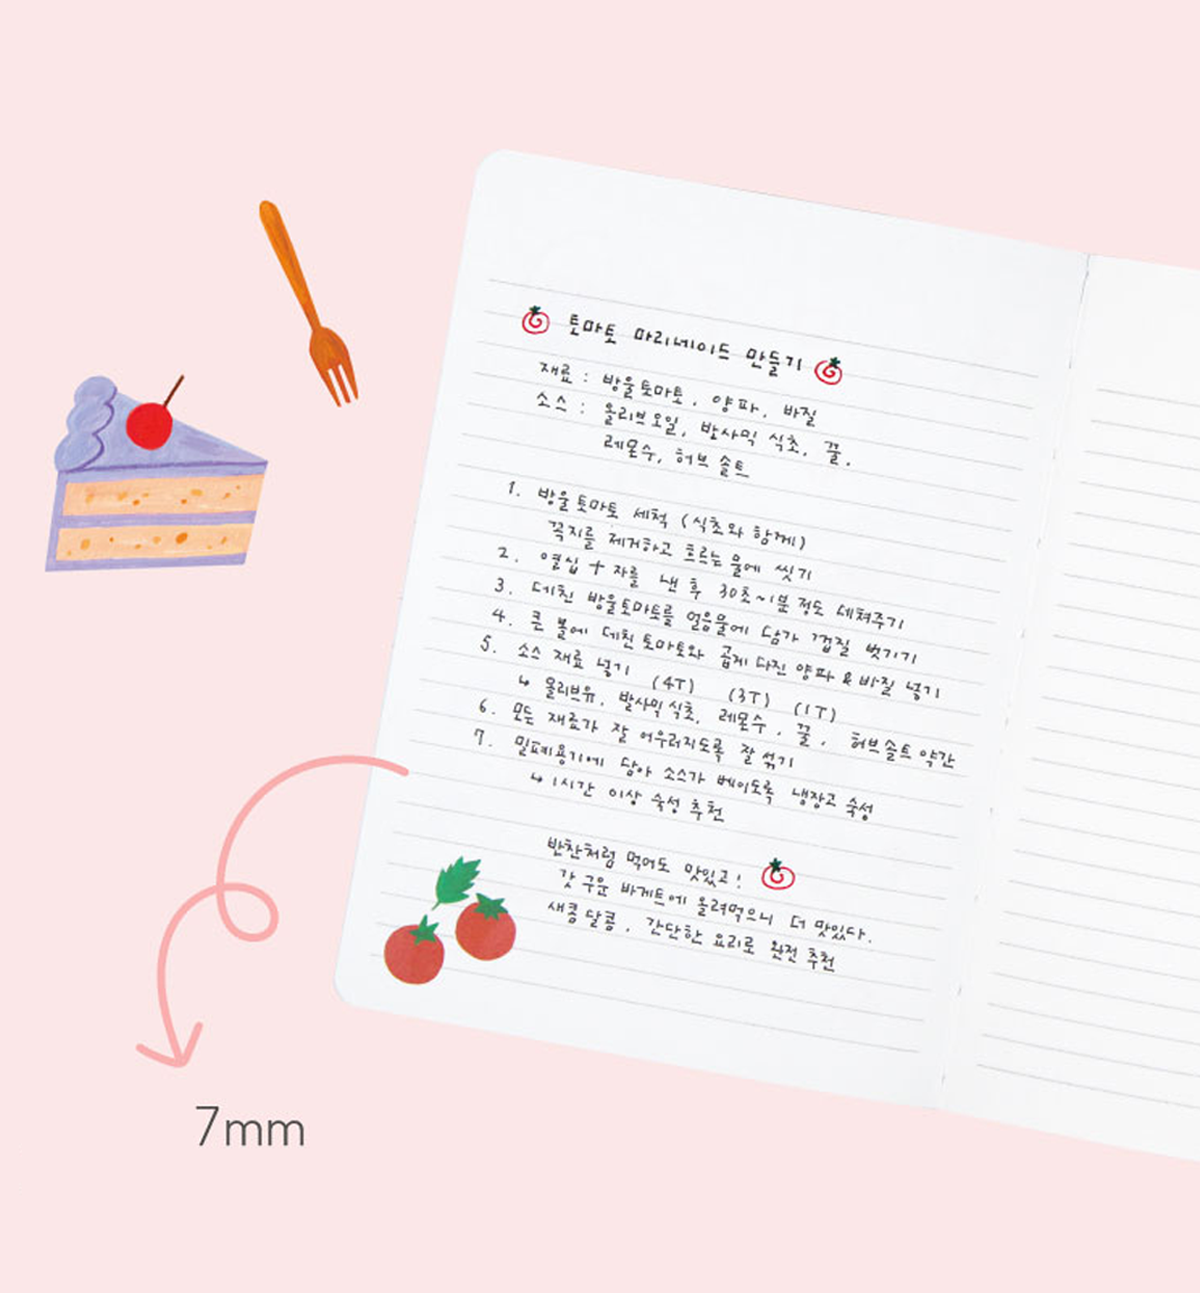 토마토 마리네이드 만들기
재료 : 방울토마토, 양파, 바질
소스 : 올리브오일, 발사믹 식초, 꿀,
레몬수, 허브 솔트
1. 방울토마토 세척 (식초와 함께)
꼭지를 제거하고 흐르는 물에 씻기
2. 열십 十자를 낸 후 30초~1분 정도 데쳐주기
3. 데친 방울토마토를 얼음물에 담가 껍질 벗기기
4. 큰 볼에 데친 토마토와 곱게 다진 양파 & 바질 넣기
5. 소스 재료 넣기 (4T) (3T) (1T)
↳ 올리브유, 발사믹식초, 레몬수, 꿀, 허브솔트 약간
6. 모든 재료가 잘 어우러지도록 잘 섞기
7. 밀폐용기에 담아 소스가 베이도록 냉장고 숙성
↳ 1시간 이상 숙성 추천
반찬처럼 먹어도 맛있고!
갓 구운 바게트에 올려먹으니 더 맛있다.
새콤달콤, 간단한 요리로 완전 추천
7mm